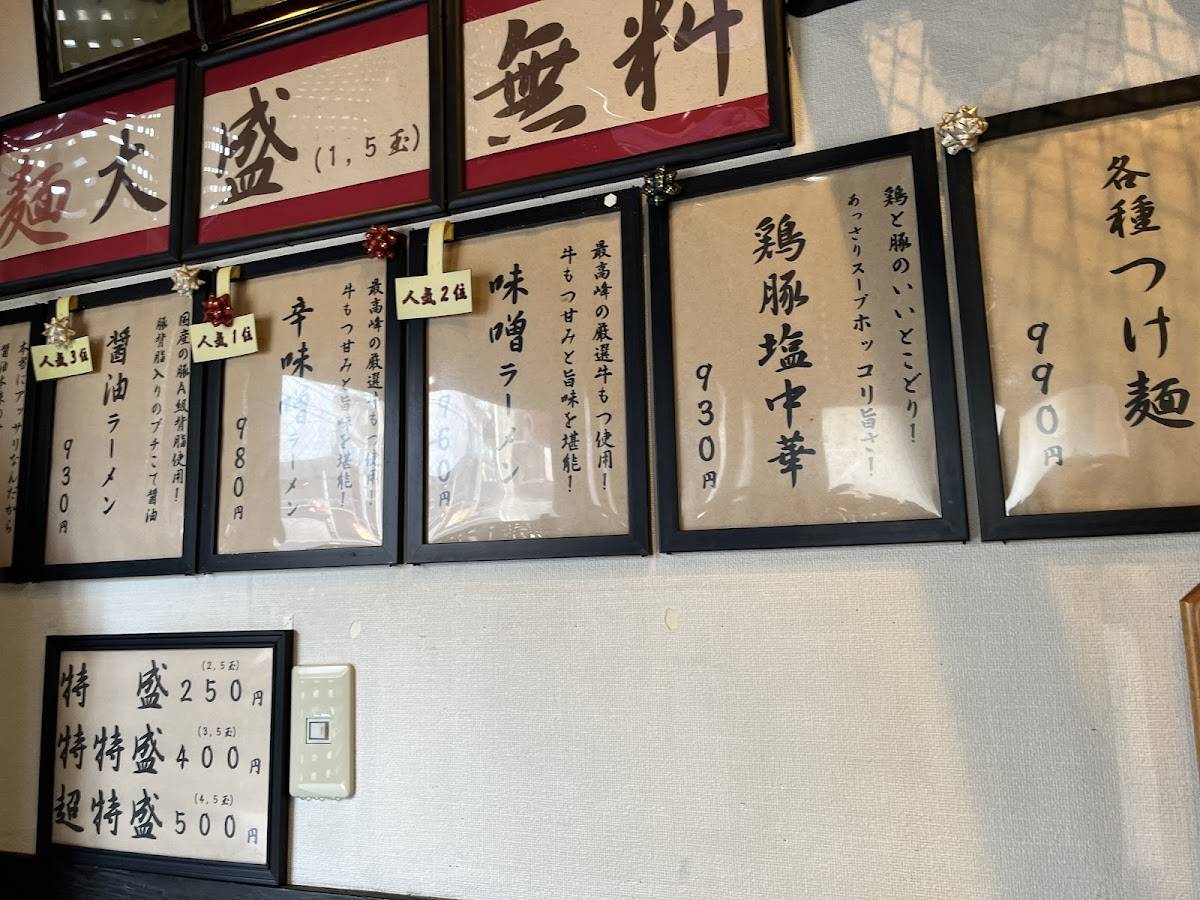 麺大盛(1,5玉)無料
各種つけ麺
990円
鶏と豚のいいとこどり!
あっさりスープホッコリ旨さ!
鶏豚塩中華
930円
最高峰の厳選牛もつ使用!
牛もつ甘みと旨味を堪能!
味噌ラーメン
960円
人気2位
最高峰の厳選牛もつ使用!
牛もつ甘みと旨味を堪能!
辛味噌ラーメン
980円
人気1位
国産の豚A級背脂使用!
豚背脂入りのプチこて醤油
醤油ラーメン
930円
人気3位
本当にアッサリなんだから
特盛(2,5玉)250円
特特盛(3,5玉)400円
超特盛(4,5玉)500円